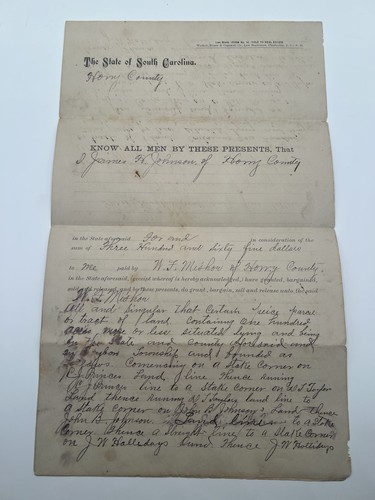 The State of South Carolina.
Horry County
KNOW ALL MEN BY THESE PRESENTS, That
I James H Johnson of Horry County
in the State aforesaid for and in consideration of the
sum of Three Hundred and Sixty five dollars
to me paid by W. F. Mishoe of Horry County
in the State aforesaid, (receipt whereof is hereby acknowledged), have granted, bargained,
sold and released, and by these presents, do grant, bargain, sell and release unto the said
W. F. Mishoe
All and Singular that Certain Piece parcel
or tract of land Containing One hundred
acres more or less situated lying and being
in the State and County aforesaid and
in Township and bounded as
Comencing on a State Corner on
Princes Land line Thence running
R J Princes line to a State Corner on
Land thence running Taylors land line to
a State corner on John B Johnson's Land thence
John B. Johnson Land line to a State
Corner Thence a Straight line to a State Corner
on J. W. Hollidays Land Thence J. W. Hollidays